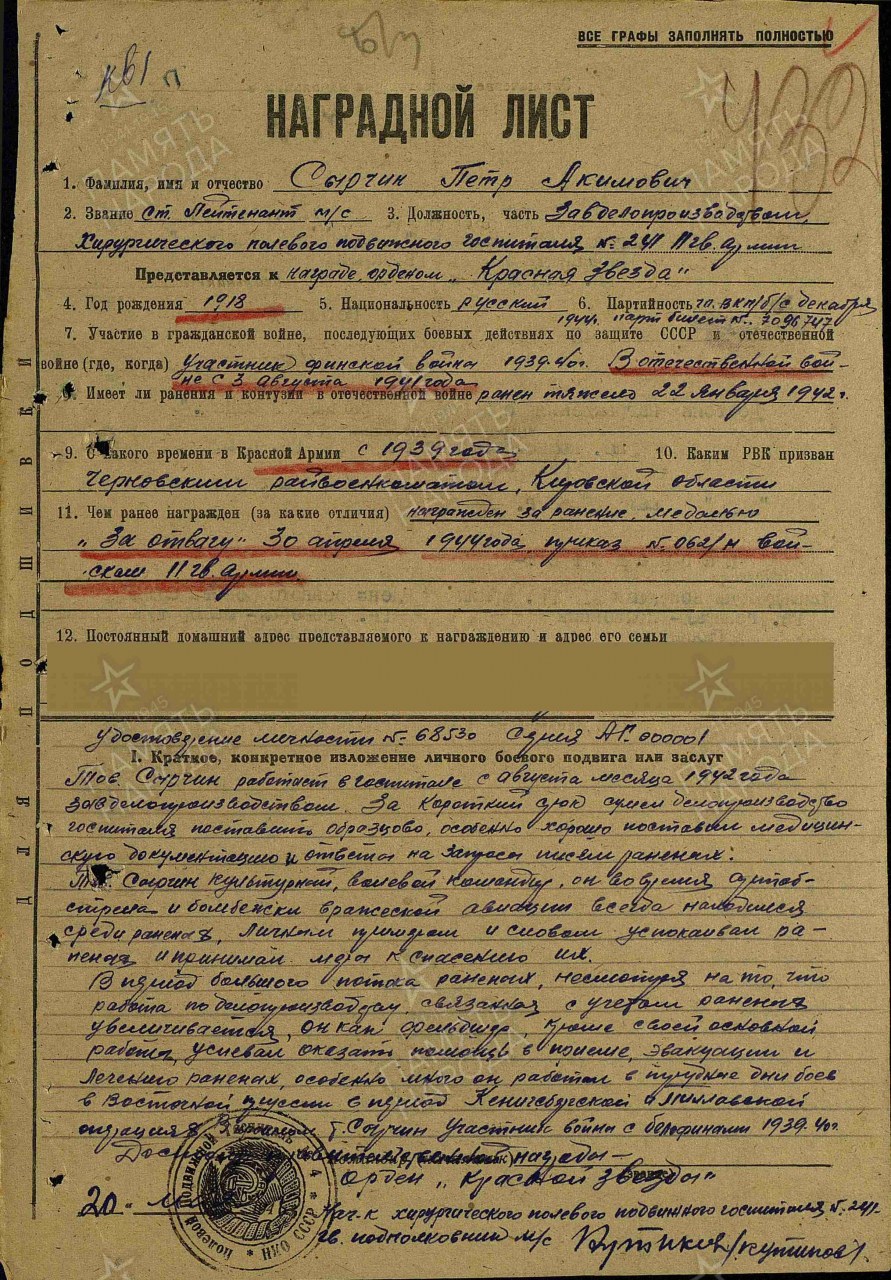 ВСЕ ГРАФЫ ЗАПОЛНЯТЬ ПОЛНОСТЬЮ
432
НАГРАДНОЙ ЛИСТ
1. Фамилия, имя и отчество Сырчин Петр Акимович
2. Звание ст. Лейтенант м/с 3. Должность, часть Завделопроизводством,
Хирургического полевого подвижного госпиталя №-241 11 гв. армии
Представляется к награде, орденом „Красная Звезда"
4. Год рождения 1918 5. Национальность русский 6. Партийность чл. ВКП/б/ с декабря
1944г. парт билет №. 7096747
7. Участие в гражданской войне, последующих боевых действиях по защите СССР и отечественной
войне (где, когда) Участник финской война 1939-40г. В отечественной вой-
не с 3 августа 1941 года
8. Имеет ли ранения и контузии в отечественной войне ранен тяжело 22 января 1942 г.
9. С какого времени в Красной Армии с 1939 года 10. Каким РВК призван
Черновским райвоенкоматом, Кировской области
11. Чем ранее награжден (за какие отличия) награжден за ранение, медалью
„За отвагу" 30 апреля 1944 года, приказ №. 062/н вой-
скам 11 гв. армии
12. Постоянный домашний адрес представляемого к награждению и адрес его семьи
удостоверение личности №. 68530 Серия АГ. 000001
I. Краткое, конкретное изложение личного боевого подвига или заслуг
Тов. Сырчин работает в госпитале с августа месяца 1942 года
завделопроизводством. За короткий срок сумел делопроизводство
госпиталя поставить образцово, особенно хорошо поставил медицин-
скую документацию и ответы на запросы писем раненых.
Тов. Сырчин культурный, волевой командир, он во время артоб-
стрела и бомбежки вражеской авиации всегда находился
среди раненых, личным примером и словом успокаивал ра-
неных и принимал меры к спасению их.
В период большого потока раненых, несмотря на то, что
работа по делопроизводству, связанная с учетом раненых
увеличивается, он как фельдшер, кроме своей основной
работы, успевал оказать помощь в приеме, эвакуации и
лечению раненых, особенно много он работал в трудные дни боев
в Восточной Пруссии в период Кенигсбергской и Пиллавской
операциях. т. Сырчин Участник война с белофинами 1939-40г.
награды-
Орден „Красной Звезды"
20
Нач-к хирургического полевого подвижного госпиталя №. 241-
гв. подполковник м/с /Кутиков/
ПОЛЕВОЙ ПОДВИЖНОЙ
НКО СССР
ДЛЯ ПОДШИВКИ
ПАМЯТЬ НАРОДА